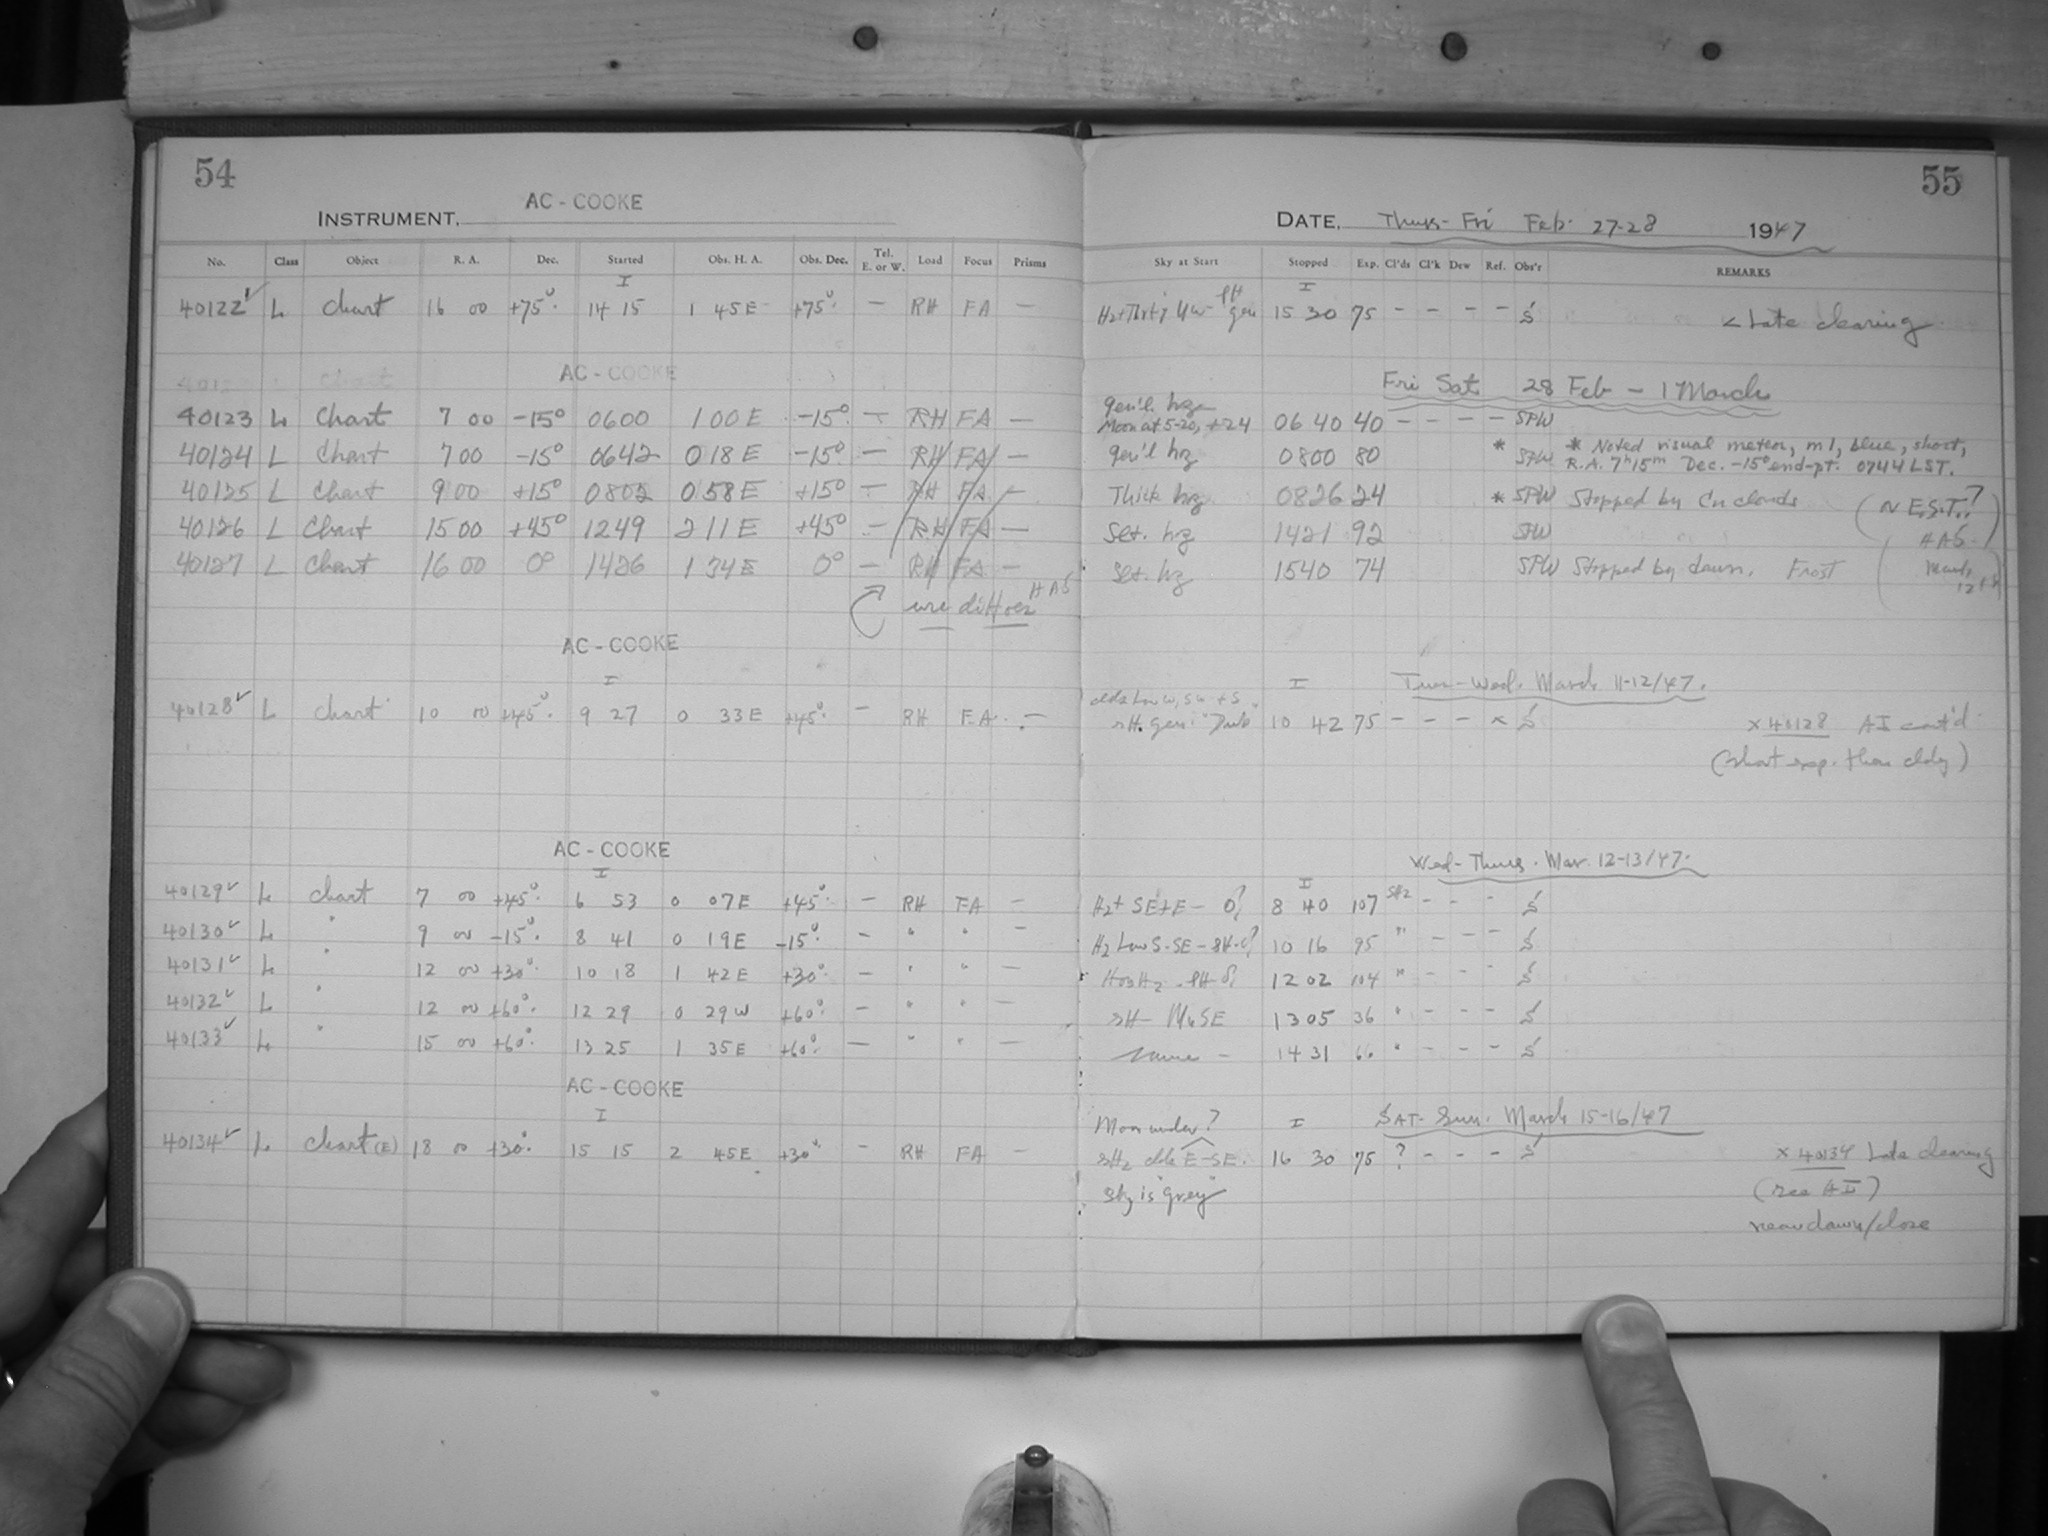 54
55
AC - COOKE
INSTRUMENT,
DATE, Thurs - Fri Feb. 27-28 1947
No. Class Object R. A. Dec. Started Obs. H. A. Obs. Dec. Tel. E. or W. Load Focus Prisms Sky at Start Stopped Exp. Cl'ds Cl'k Dew Ref. Obs'r REMARKS
I I
40122 L chart 16 00 +75° 14 15 1 45 E +75° — RH FA — 15 30 75 – – – – S < Late clearing
AC - COOKE Fri Sat 28 Feb – 1 March
40123 L Chart 7 00 -15° 0600 1 00 E -15° — RH FA — gen'l. hz Moon at 5-20, +24 06 40 40 – – – – SPW
40124 L Chart 7 00 -15° 0642 0 18 E -15° — RH FA — gen'l hz 0800 80 * SPW * Noted visual meteor, m 1, blue, short,
R.A. 7h15m Dec. -15° end-pt. 0744 LST.
40125 L Chart 9 00 +15° 0802 0 58 E +15° — RH FA — Thick hz 0826 24 * SPW Stopped by Cu clouds (~ E.S.T.?)
40126 L Chart 15 00 +45° 1249 2 11 E +45° — RH FA — Set. hz 1421 92 SPW HAS
40127 L Chart 16 00 0° 1426 1 34 E 0° — RH FA — Set. hz 1540 74 SPW Stopped by dawn. Frost March 12
use dittoes HAS
AC - COOKE
I I Tues-Wed. March 11-12/47.
clds Low W, SW + S
40128 L chart 10 00 +45° 9 27 0 33 E +45° — RH FA — sH. gen. 10 42 75 – – – x S x 40128 AI cont'd
(short exp. then cldy)
AC - COOKE Wed-Thurs. Mar. 12-13/47.
I I
40129 L chart 7 00 +45° 6 53 0 07 E +45° — RH FA — H2+ SE+E – 8 40 107 SH2 – – – S
40130 L " 9 00 -15° 8 41 0 19 E -15° — " " — H2 Low S-SE – sH. 10 16 95 " – – – S
40131 L " 12 00 +30° 10 18 1 42 E +30° — " " — 12 02 104 " – – – S
40132 L " 12 00 +60° 12 29 0 29 W +60° — " " — sH – SE 13 05 36 " – – – S
40133 L " 15 00 +60° 13 25 1 35 E +60° — " " — same – 14 31 66 " – – – S
AC - COOKE
I Moon under? I SAT- Sun. March 15-16/47
40134 L chart (E) 18 00 +30° 15 15 2 45 E +30° — RH FA — sH2 clds E-SE. 16 30 75 ? – – – S x 40134 Late clearing
Sky is "grey" (see AI)
near dawn/close